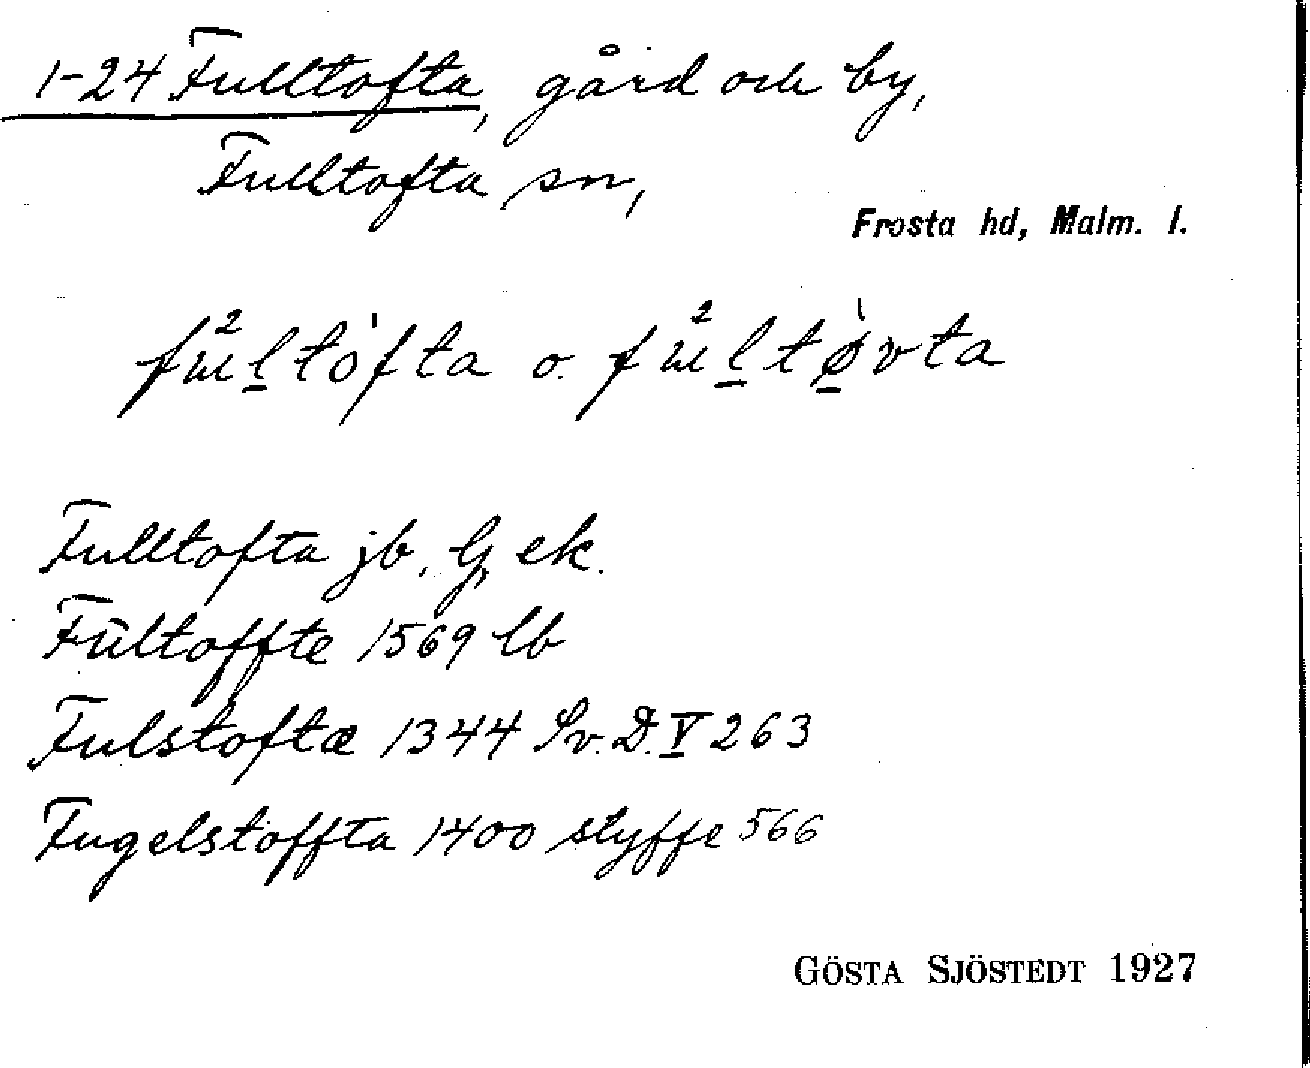 1-24 Fulltofta, gård och by,
Fulltofta sn,
Frosta hd, Malm. l.
fu²ltòfta o. fu²ltø̀vta
Fulltofta jb, G, ek.
Fŭltoffte 1569 lb
Fulstoftæ 1344 Sv. D. V 263
Fugelstoffta 1400 Styffe 566
GÖSTA SJÖSTEDT 1927